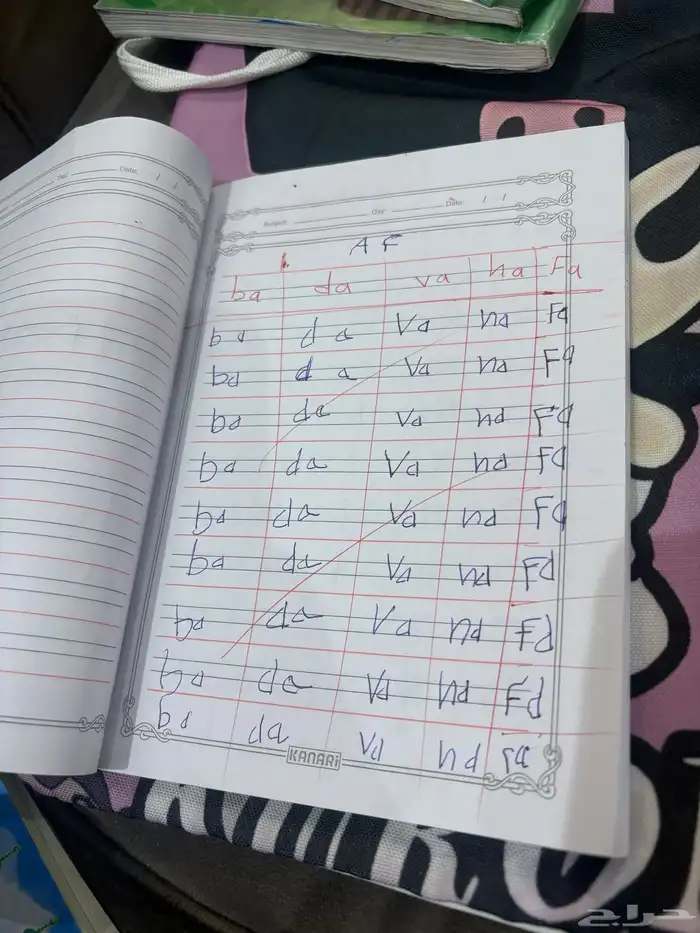 Day: Date: / /
Subject: Day: Date: / /
A F
ba da va na Fa
ba da Va na Fa
ba da Va na Fa
ba da Va na Fa
ba da Va na Fa
ba da Va na Fa
ba da Va na Fa
ba da Va na Fa
ba da Va na Fa
ba da Va na Fa
KANARi
حراج